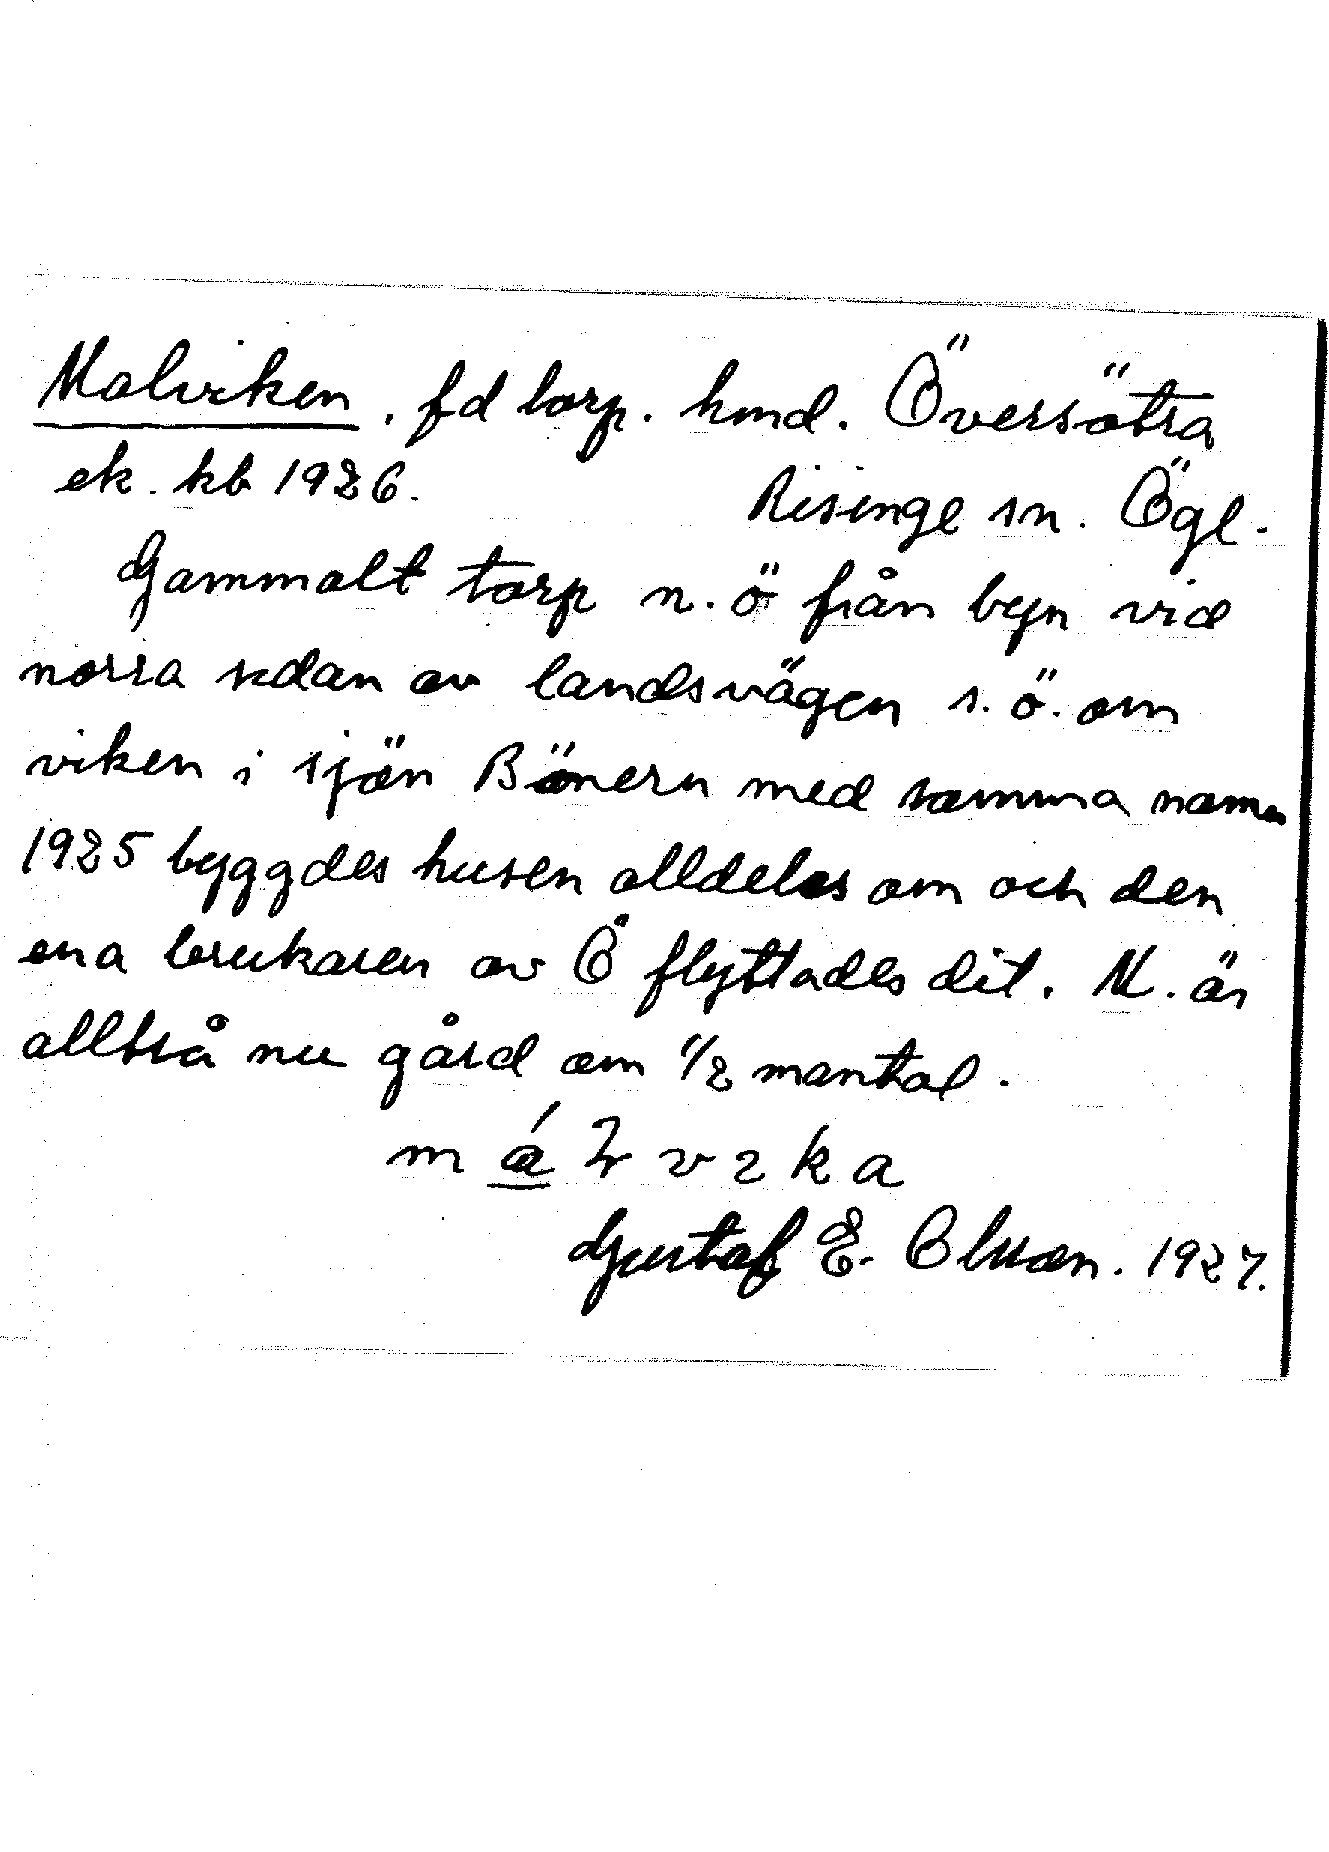 Malviken. fd torp. hmd. Översätra
ek. kb 1926.
Risinge sn. Ögl.
Gammalt torp n.ö från byn vid
norra sidan av landsvägen s.ö. om
viken i sjön Bönern med samma namn
1925 byggdes husen alldeles om och den
ena brukaren av Ö flyttades dit. M. är
alltså nu gård om 1/2 mantal.
Gustaf E. Olsson. 1927.